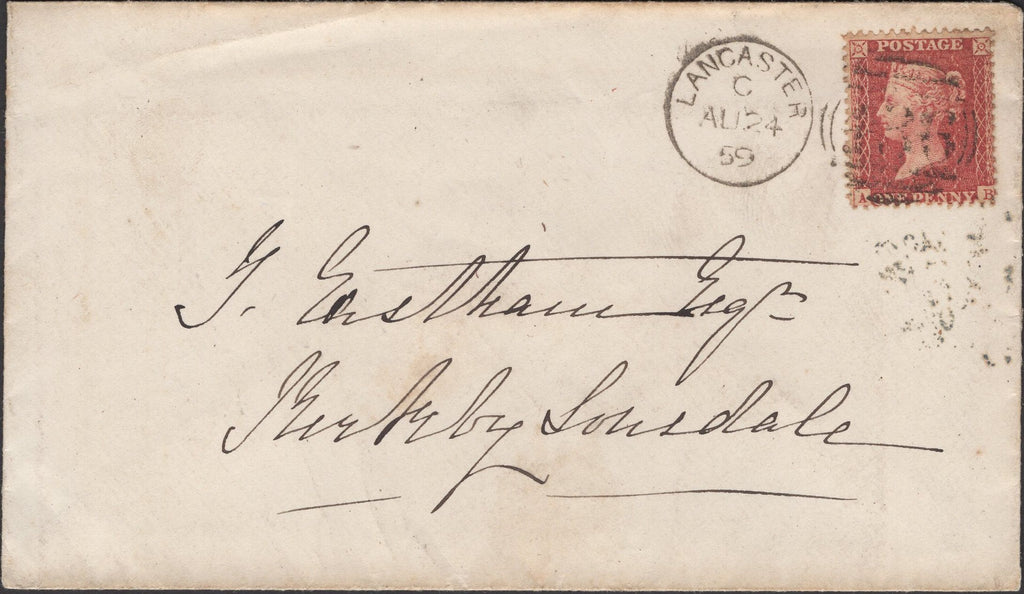 POSTAGE
LANCASTER
C
AU 24
59
A ONE PENNY B
T. Eastham Esqr
Kirkby Lonsdale